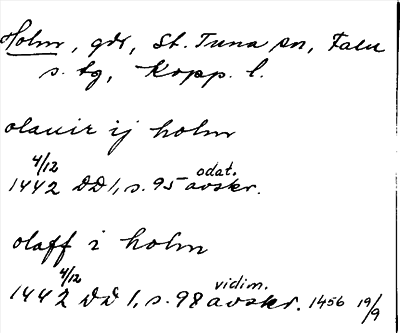 Holm, gdr, St. Tuna sn, Falu
s. tg, Kopp. l.
olauir ij holm
4/12 odat.
1442 DD 1, s. 95 avskr.
olaff i holm
4/12 vidim.
1442 DD 1, s. 98 avskr. 1456 19/9